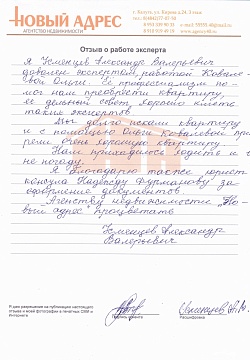 НОВЫЙ АДРЕС
АГЕНТСТВО НЕДВИЖИМОСТИ
Отзыв о работе эксперта
Я Александр Валерьевич
доволен экспертом, работой Ковале-
вой Ольги. Её профессионализм по-
мог нам приобрести квартиру,
её дельный совет, хорошо иметь
таких экспертов.
Мы долго искали квартиру
и с помощью Ольги Ковалевой приоб-
рели очень хорошую квартиру.
Нам приходилось ходить и в
не погоду.
Я благодарю также юрист
Фурманову за
оформление документов.
Агенству недвижимости "Но-
вый адрес" процветать
Александр
Валерьевич
Я даю разрешение на публикацию настоящего
отзыва и моей фотографии в печатных СМИ и
Интернете
Подпись клиента
Расшифровка